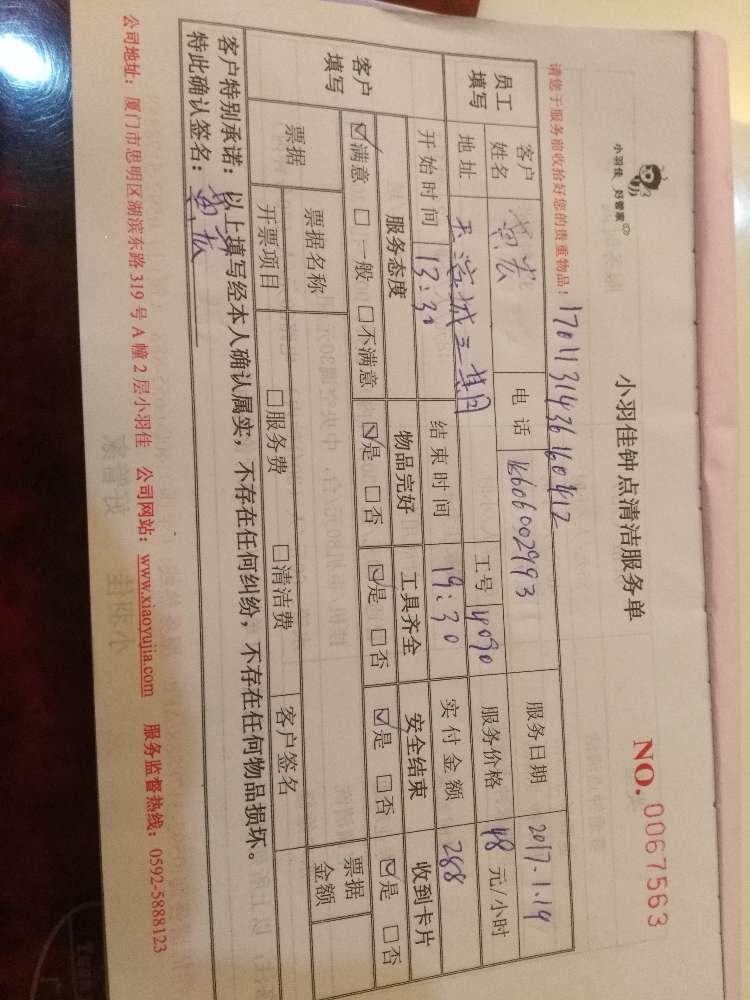 小羽佳 好管家
小羽佳钟点清洁服务单
NO. 0067563
请您于服务前收拾好您的贵重物品!
员工填写 客户姓名 黄宏 电话 服务日期 2017.1.19
地址 天湖城三期 工号 4090 服务价格 48 元/小时
开始时间 13:30 结束时间 19:30 实付金额 288
客户填写 服务态度 物品完好 工具齐全 安全结束 收到卡片
☑满意 □一般 □不满意 ☑是 □否 ☑是 □否 ☑是 □否 ☑是 □否
票据 票据名称 客户签名 票据金额
开票项目 □服务费 □清洁费
客户特别承诺:以上填写经本人确认属实,不存在任何纠纷,不存在任何物品损坏。
特此确认签名:黄宏
公司地址:厦门市思明区湖滨东路 319 号 A 幢 2 层小羽佳 公司网站:www.xiaoyujia.com 服务监督热线:0592-5888123